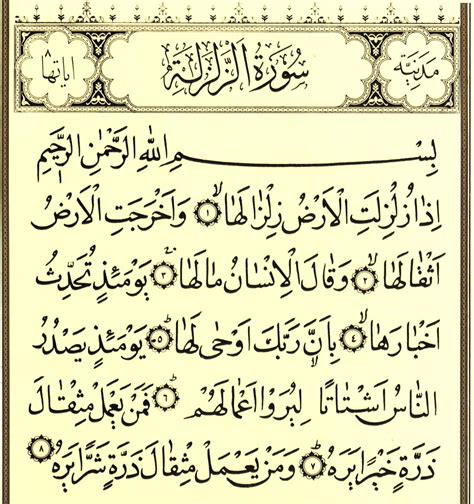 مدنية سورة الزلزلة آياتها ٨
بِسْمِ اللهِ الرَّحْمٰنِ الرَّحٖيمِ
اِذَا زُلْزِلَتِ الْاَرْضُ زِلْزَالَهَاۙ ﴿١﴾ وَاَخْرَجَتِ الْاَرْضُ
اَثْقَالَهَاۙ ﴿٢﴾ وَقَالَ الْاِنْسَانُ مَالَهَاۚ ﴿٣﴾ يَوْمَئِذٍ تُحَدِّثُ
اَخْبَارَهَاۙ ﴿٤﴾ بِاَنَّ رَبَّكَ اَوْحٰى لَهَاۜ ﴿٥﴾ يَوْمَئِذٍ يَصْدُرُ
النَّاسُ اَشْتَاتًا لِيُرَوْا اَعْمَالَهُمْۜ ﴿٦﴾ فَمَنْ يَعْمَلْ مِثْقَالَ
ذَرَّةٍ خَيْرًا يَرَهُۜ ﴿٧﴾ وَمَنْ يَعْمَلْ مِثْقَالَ ذَرَّةٍ شَرًّا يَرَهُ ﴿٨﴾